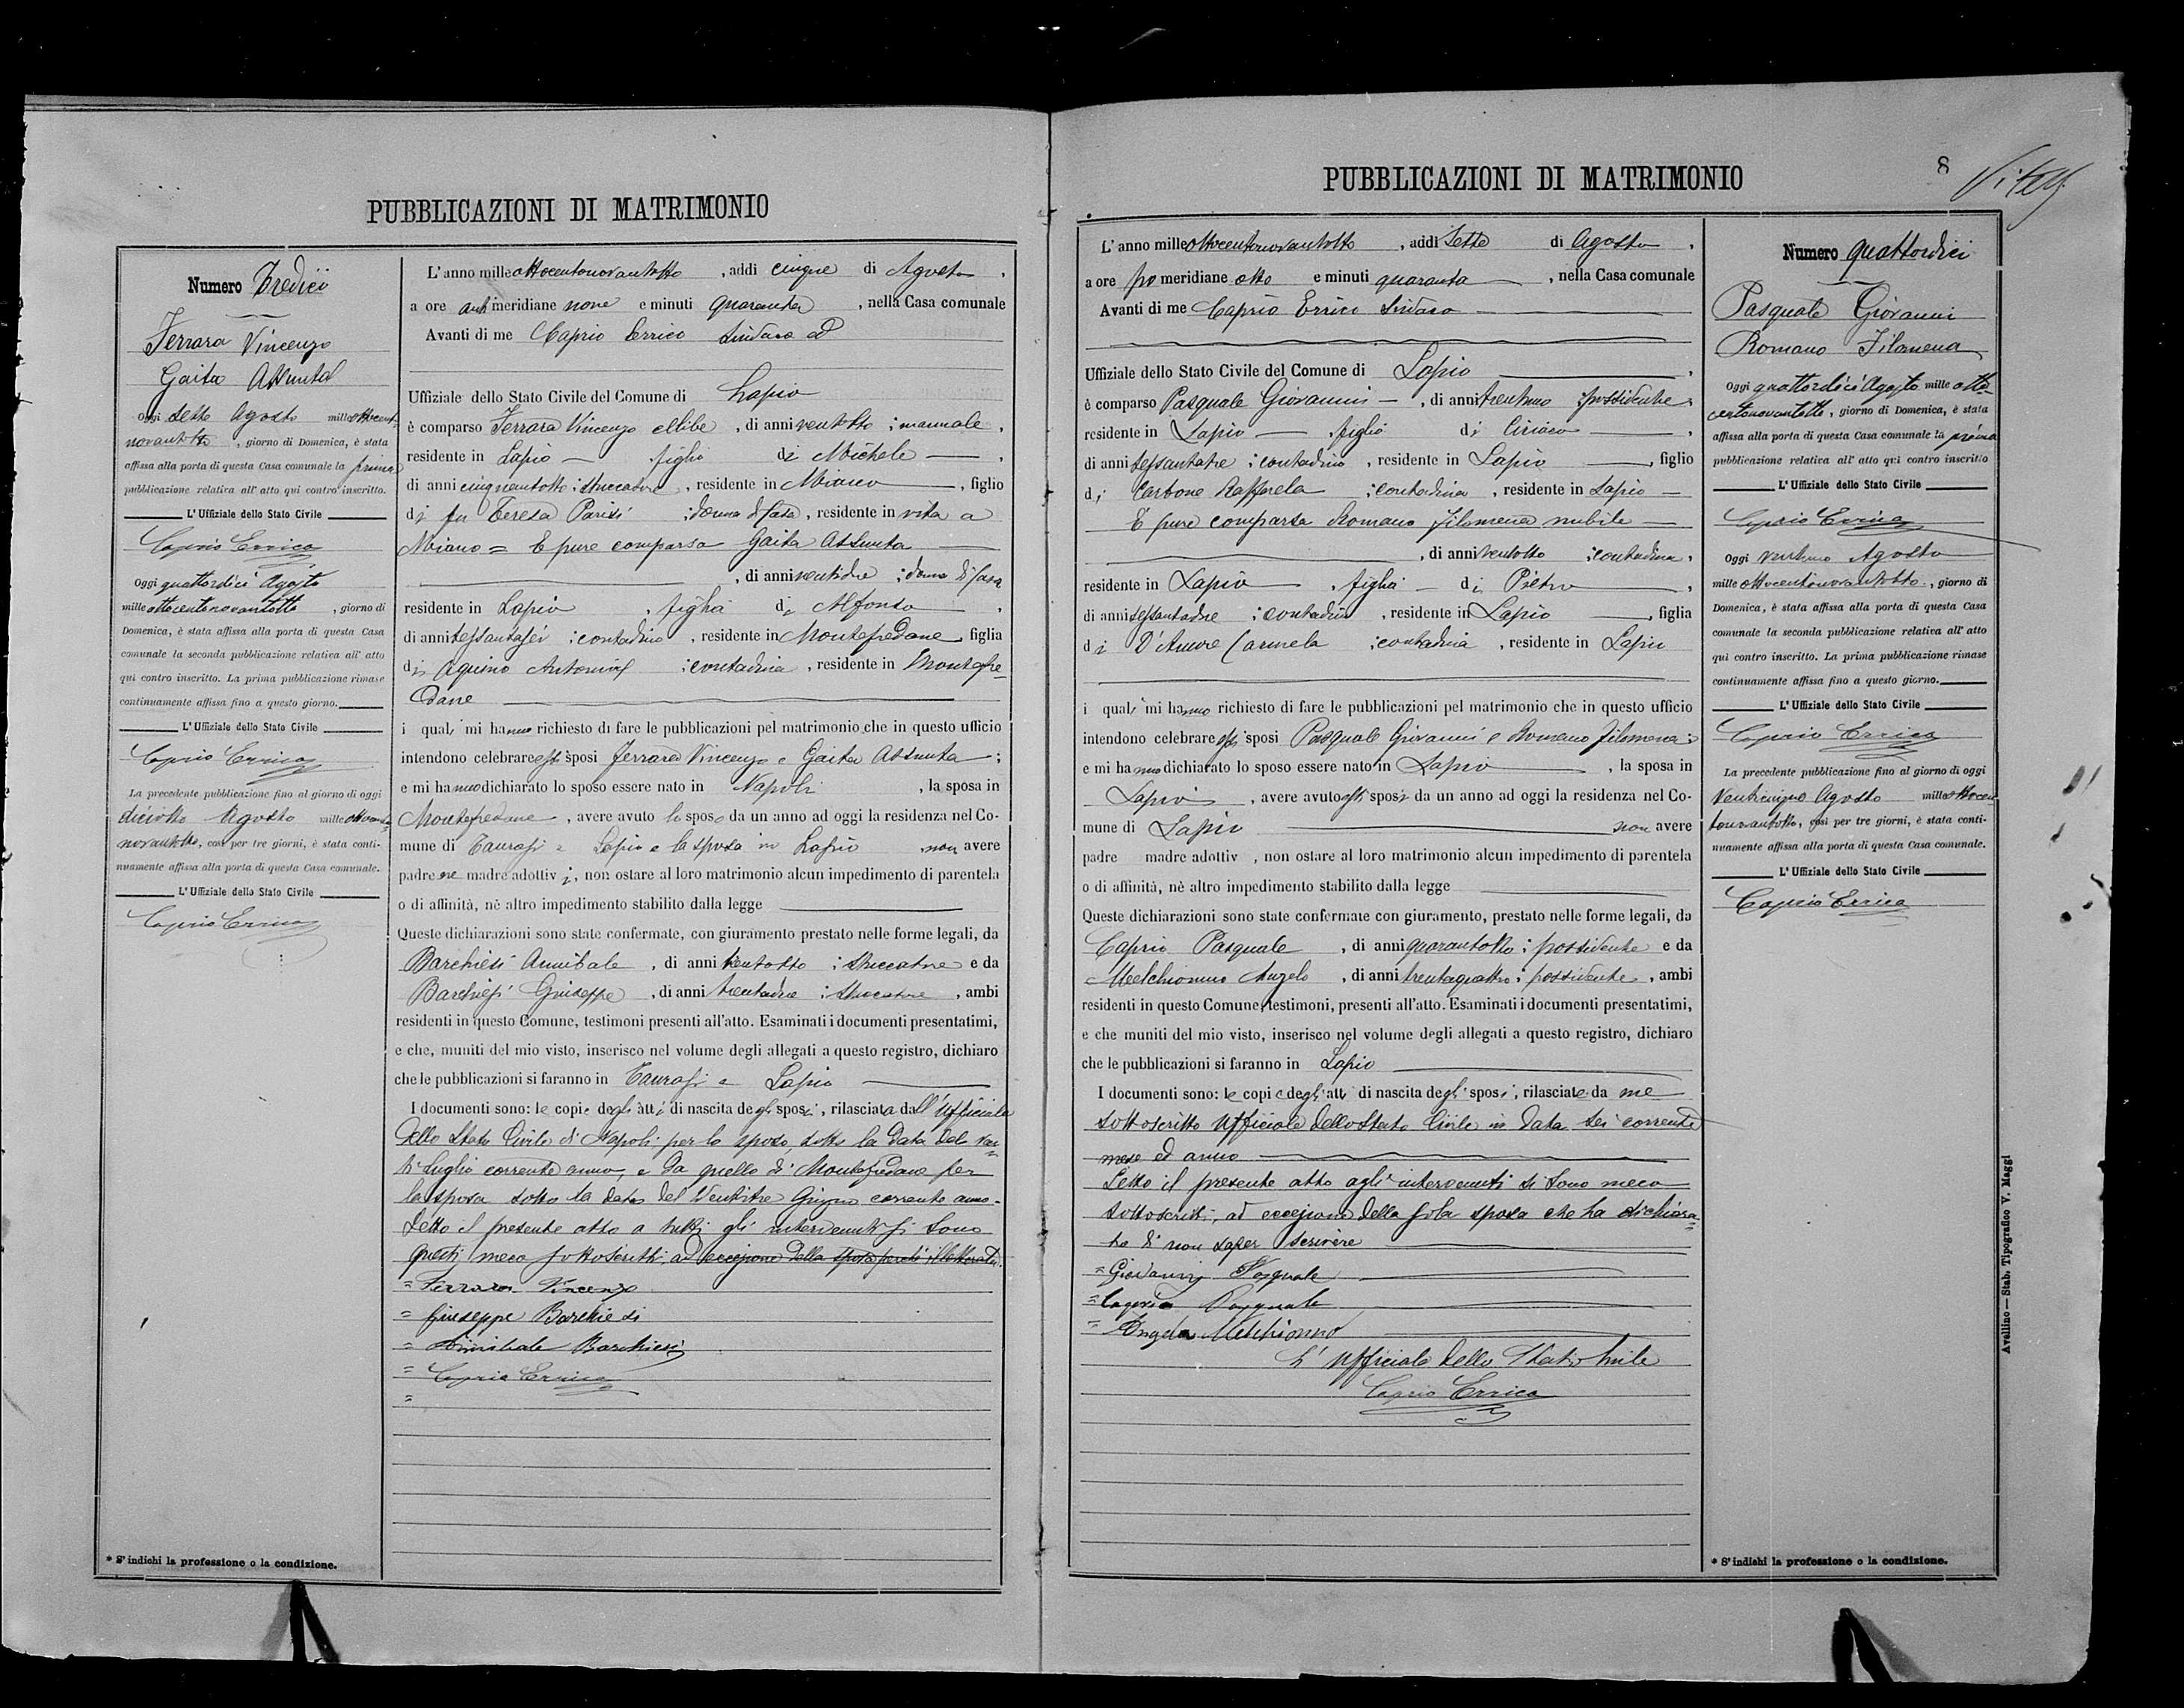 PUBBLICAZIONI DI MATRIMONIO
Numero Tredici
Ferrara Vincenzo
Gaita Assunta
Oggi sette Agosto mille ottocento
novantotto, giorno di Domenica, è stata
affissa alla porta di questa Casa comunale la prima
pubblicazione relativa all' atto qui contro inscritto.
L' Uffiziale dello Stato Civile
Caprio Errico
Oggi quattordici Agosto
mille ottocentonovantotto, giorno di
Domenica, è stata affissa alla porta di questa Casa
comunale la seconda pubblicazione relativa all' atto
qui contro inscritto. La prima pubblicazione rimase
continuamente affissa fino a questo giorno.
L' Uffiziale dello Stato Civile
Caprio Errico
La precedente pubblicazione fino al giorno di oggi
diciotto Agosto mille ottocento
novantotto, così per tre giorni, è stata conti-
nuamente affissa alla porta di questa Casa comunale.
L' Uffiziale dello Stato Civile
Caprio Errico
* S' indichi la professione o la condizione.
L' anno mille ottocentonovantotto, addì cinque di Agosto,
a ore anti meridiane nove e minuti quaranta, nella Casa comunale
Avanti di me Caprio Errico Sindaco ed
Uffiziale dello Stato Civile del Comune di Lapio
è comparso Ferrara Vincenzo celibe, di anni ventotto; manuale,
residente in Lapio figlio di Michele,
di anni cinquantotto; stuccatore, residente in Miano, figlio
di fu Teresa Parisi; donna di casa, residente in vita a
Miano = E pure comparsa Gaita Assunta
, di anni ventidue; donna di casa
residente in Lapio, figlia di Alfonso,
di anni sessantasei; contadino, residente in Montefredane, figlia
di Aquino Antonia; contadina, residente in Montefre=
dane
i quali mi hanno richiesto di fare le pubblicazioni pel matrimonio che in questo ufficio
intendono celebrare essi sposi Ferrara Vincenzo e Gaita Assunta;
e mi hanno dichiarato lo sposo essere nato in Napoli, la sposa in
Montefredane, avere avuto lo sposo da un anno ad oggi la residenza nel Co-
mune di Taurasi e Lapio e la sposa in Lapio, non avere
padre ne madre adottivi, non ostare al loro matrimonio alcun impedimento di parentela
o di affinità, nè altro impedimento stabilito dalla legge
Queste dichiarazioni sono state confermate, con giuramento prestato nelle forme legali, da
Barchiesi Annibale, di anni trentotto; stuccatore e da
Barchiesi Giuseppe, di anni trentadue; stuccatore, ambi
residenti in questo Comune, testimoni presenti all'atto. Esaminati i documenti presentatimi,
e che, muniti del mio visto, inserisco nel volume degli allegati a questo registro, dichiaro
che le pubblicazioni si faranno in Taurasi e Lapio
I documenti sono: le copie degli atti di nascita degli sposi, rilasciata dall'Ufficiale
dello Stato Civile di Napoli per lo sposo, sotto la data del ven=
ti Luglio corrente anno, e da quello di Montefredane per
la sposa sotto la data del Ventitre Giugno corrente anno.
Letto il presente atto a tutti gli intervenuti si sono
questi meco sottoscritti, ad eccezione della sposa perché illetterata.
= Ferrara Vincenzo
= Giuseppe Barchiesi
= Annibale Barchiesi
= Caprio Errico
=
8
PUBBLICAZIONI DI MATRIMONIO
L' anno mille ottocentonovantotto, addì Sette di Agosto,
a ore po meridiane otto e minuti quaranta, nella Casa comunale
Avanti di me Caprio Errico Sindaco
Uffiziale dello Stato Civile del Comune di Lapio,
è comparso Pasquale Giovanni, di anni trentuno; possidente,
residente in Lapio, figlio di Ciriaco,
di anni sessantatre; contadino, residente in Lapio, figlio
di Carbone Raffaela; contadina, residente in Lapio
È pure comparsa Romano Filomena nubile
, di anni ventotto; contadina,
residente in Lapio, figlia di Pietro,
di anni sessantadue; contadino, residente in Lapio, figlia
di D'Amore Carmela; contadina, residente in Lapio
i quali mi hanno richiesto di fare le pubblicazioni pel matrimonio che in questo ufficio
intendono celebrare essi sposi Pasquale Giovanni e Romano Filomena;
e mi hanno dichiarato lo sposo essere nato in Lapio, la sposa in
Lapio, avere avuto gli sposi da un anno ad oggi la residenza nel Co-
mune di Lapio non avere
padre madre adottiv, non ostare al loro matrimonio alcun impedimento di parentela
o di affinità, nè altro impedimento stabilito dalla legge
Queste dichiarazioni sono state confermate con giuramento, prestato nelle forme legali, da
Caprio Pasquale, di anni quarantotto; possidente e da
Melchionno Angelo, di anni trentaquattro; possidente, ambi
residenti in questo Comune, testimoni, presenti all'atto. Esaminati i documenti presentatimi,
e che muniti del mio visto, inserisco nel volume degli allegati a questo registro, dichiaro
che le pubblicazioni si faranno in Lapio
I documenti sono: le copie degli atti di nascita degli sposi, rilasciate da me
sottoscritto Ufficiale dello Stato Civile in data sei corrente
mese ed anno
Letto il presente atto agli intervenuti si sono meco
sottoscritti, ad eccezione della sola sposa che ha dichiara=
to di non saper scrivere
= Giovanni Pasquale
= Caprio Pasquale
= Angelo Melchionno
L' Ufficiale dello Stato Civile
Caprio Errico
Numero quattordici
Pasquale Giovanni
Romano Filomena
Oggi quattordici Agosto mille otto=
centonovantotto, giorno di Domenica, è stata
affissa alla porta di questa Casa comunale la prima
pubblicazione relativa all' atto qui contro inscritto
L' Uffiziale dello Stato Civile
Caprio Errico
Oggi ventuno Agosto
mille ottocentonovantotto, giorno di
Domenica, è stata affissa alla porta di questa Casa
comunale la seconda pubblicazione relativa all' atto
qui contro inscritto. La prima pubblicazione rimase
continuamente affissa fino a questo giorno.
L' Uffiziale dello Stato Civile
Caprio Errico
La precedente pubblicazione fino al giorno di oggi
Venticinque Agosto mille ottocen
tonovantotto, così per tre giorni, è stata conti-
nuamente affissa alla porta di questa Casa comunale.
L' Uffiziale dello Stato Civile
Caprio Errico
* S' indichi la professione o la condizione.
Avellino — Stab. Tipografico V. Maggi